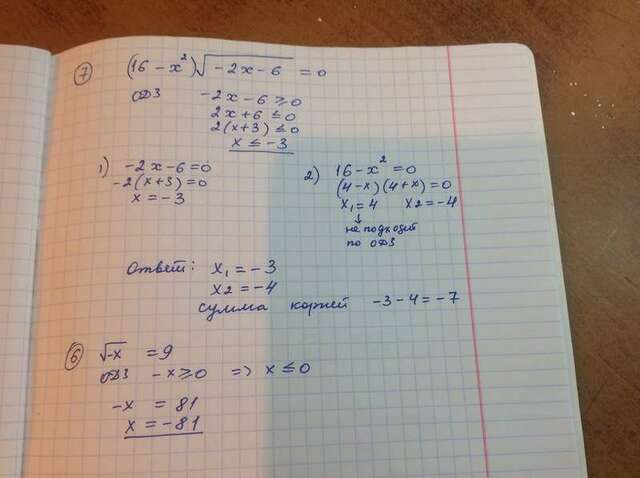 ⑦ (16 - x²)√(-2x-6) = 0
ОДЗ -2x-6 ≥ 0
2x+6 ≤ 0
2(x+3) ≤ 0
x ≤ -3
1) -2x-6=0
-2(x+3)=0
x=-3
2) 16-x²=0
(4-x)(4+x)=0
x₁=4 x2=-4
↓
не подходит
по ОДЗ
Ответ: x₁ = -3
x2 = -4
сумма корней -3-4=-7
⑥ √-x = 9
ОДЗ -x ≥ 0 => x ≤ 0
-x = 81
x = -81